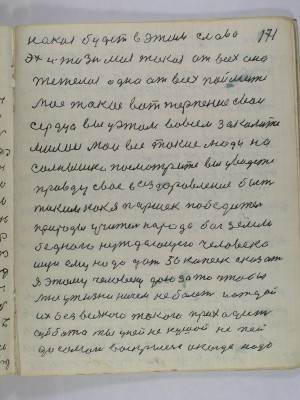 какая будет в этим слова 171
эх и жизнь моя такая от всех она
тежелая одна от всех поймите
мое такое вот терпение свои
сердца вы у этом вовсем закалите
милые мои все такие люди на
солнышко посмотрите вы увидете
правду свое в оздоровление быть
таким как я паршек победитель
природы учитель народа бог земли
бедного нуждающего человека
ищи ему надо дат 50 капеек сказат
я этому человеку даю за то чтобы
ты у жизни ничем не болит и отдай
их без всякого такого приходит
суббота ты у ней не кушай не пей
до самой воскресенье и когда надо